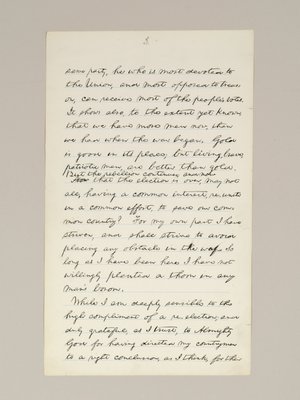 3.
same party, he who is most devoted to
the Union, and most opposed to treas-
on, can receive most of the people's votes.
It shows also, to the extent yet known,
that we have more men now, than
we had when the war began. Gold
is good in its place; but living, brave,
patriotic men, are better than gold.
But the rebellion continues; and now
that the election is over, may not
all, having a common interest, re-unite
in a common effort, to save our com-
mon country? For my own part I have
striven, and shall strive to avoid
placing any obstacle in the way. So
long as I have been here I have not
willingly planted a thorn in any
man's bosom.
While I am deeply sensible to the
high compliment of a re-election; and
duly grateful, as I trust, to Almighty
God for having directed my countrymen
to a right conclusion, as I think, for their